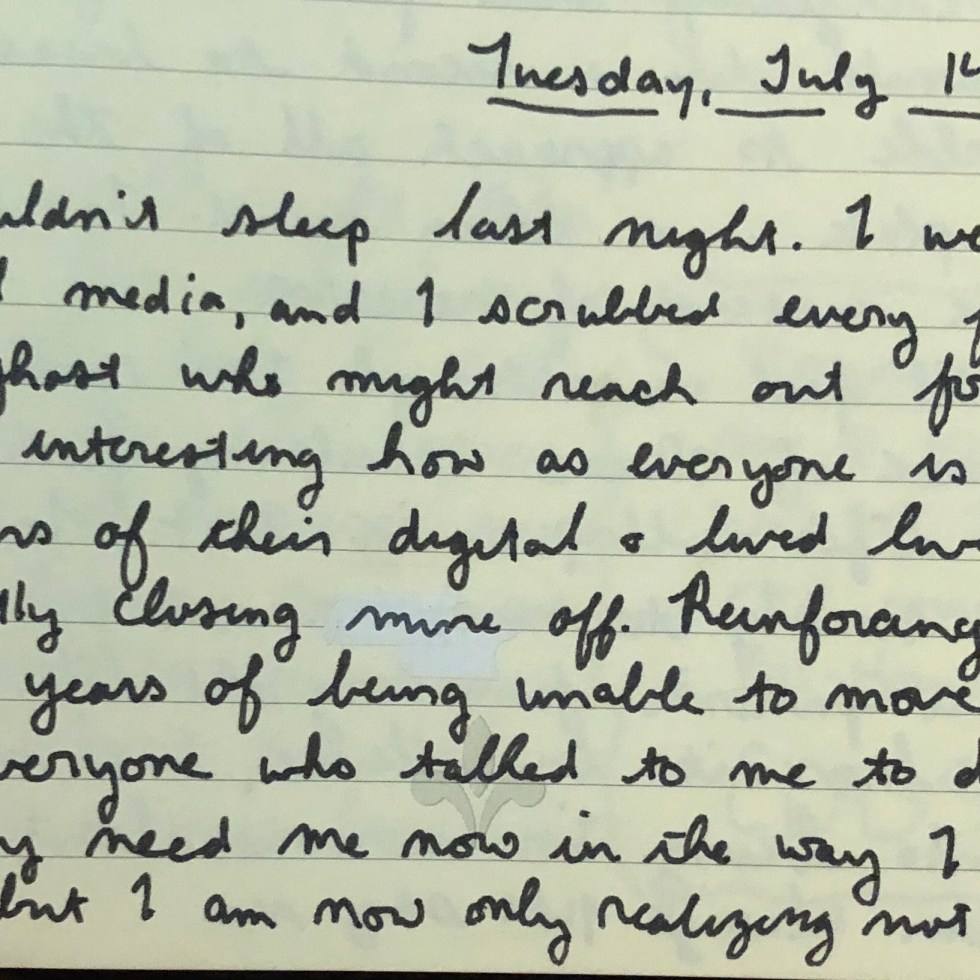 Tuesday, July 14
uldn't sleep last night. I we
l media, and I scrubbed every p
ghost who might reach out for
interesting how as everyone is
rs of their digital & lived liv
lly closing mine off. Reinforcing
years of being unable to move
veryone who talked to me to d
y need me now in the way I
but I am now only realizing not